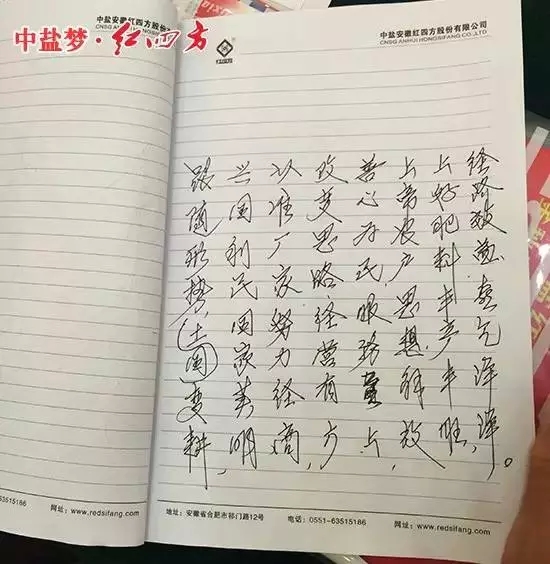 中盐梦·红四方
中盐安徽红四方股份有限公司
CNSG ANHUI HONGSIFANG CO.,LTD
红四方
跟随形势(土国)变耕,
兴国利民国家美明,
以准厂家努力经商,
改变思路经营有方,
善心为民服务 上,
上帝农户思想 效,
上好肥料丰产丰旺,
经路致 喜气洋洋。
63515186 网址:www.redsifang.com
地址:安徽省合肥市祁门路12号 电话:0551-63515186 网址:www.redsifang.com